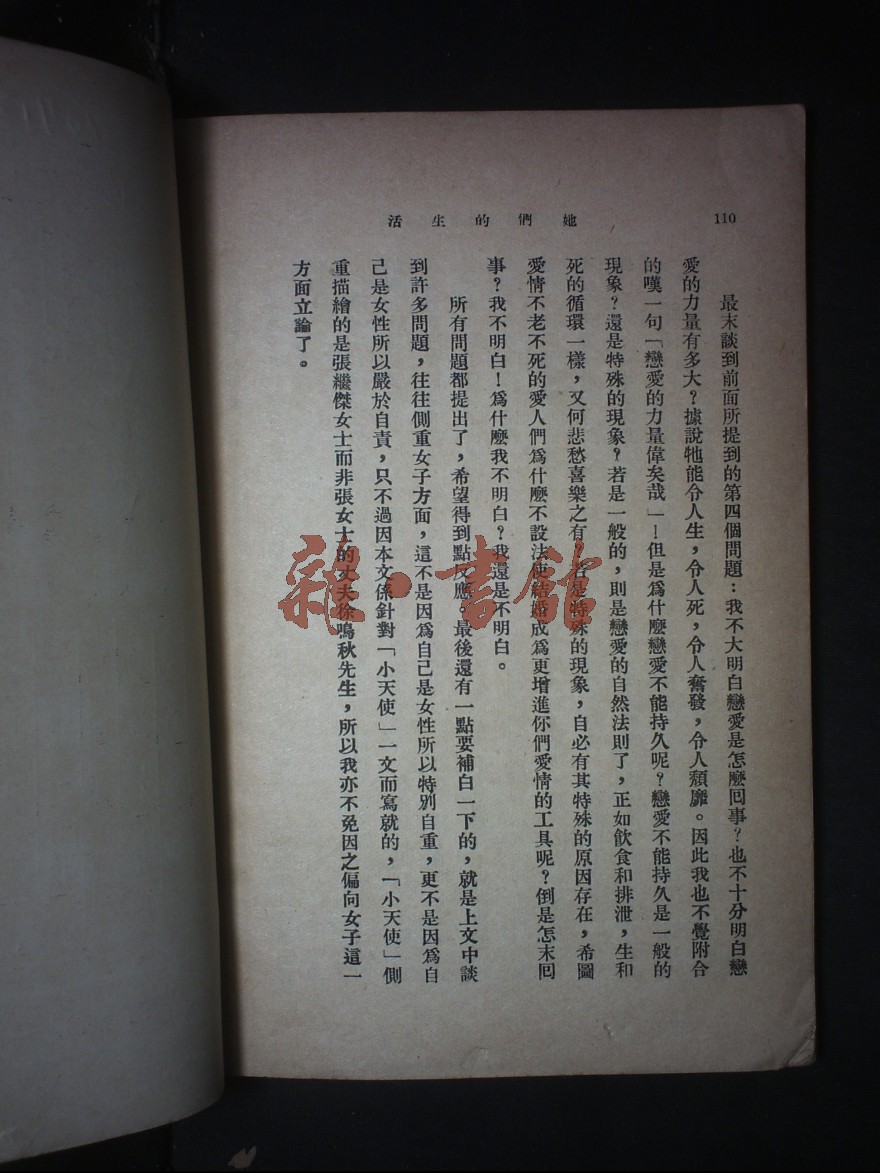 110
活生的們她
最末談到前面所提到的第四個問題：我不大明白戀愛是怎麽囘事？也不十分明白戀
愛的力量有多大？據說牠能令人生，令人死，令人奮發，令人頹靡。因此我也不覺附合
的嘆一句「戀愛的力量偉矣哉」！但是爲什麽戀愛不能持久呢？戀愛不能持久是一般的
現象？還是特殊的現象？若是一般的，則是戀愛的自然法則了，正如飲食和排泄，生和
死的循環一樣，又何悲愁喜樂之有，若是特殊的現象，自必有其特殊的原因存在，希圖
愛情不老不死的愛人們爲什麽不設法使結婚成爲更增進你們愛情的工具呢？倒是怎末囘
事？我不明白！爲什麽我不明白？我還是不明白。
所有問題都提出了，希望得到點反應。最後還有一點要補白一下的，就是上文中談
到許多問題，往往側重女子方面，這不是因爲自己是女性所以特別自重，更不是因爲自
己是女性所以嚴於自責，只不過因本文係針對「小天使」一文而寫就的，「小天使」側
重描繪的是張繼傑女士而非張女士的丈夫徐鳴秋先生，所以我亦不免因之偏向女子這一
方面立論了。
雜·書館